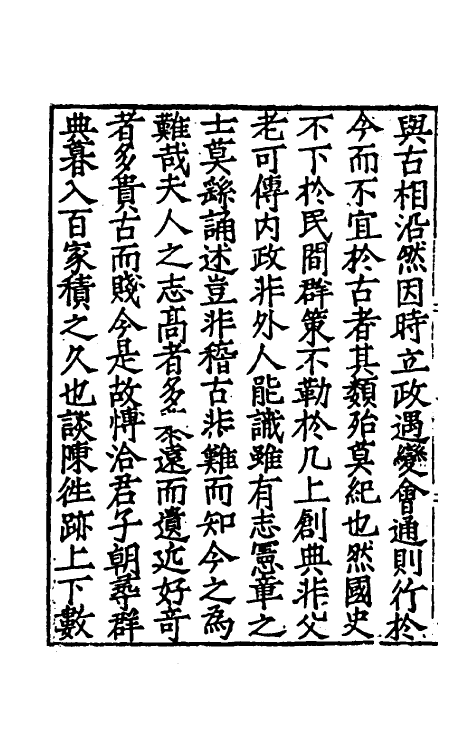 與古相沿然因時立政遇變會通則行於
今而不宜於古者其類殆莫紀也然國史
不下於民間群策不勒於几上創典非父
老可傳内政非外人能識雖有志憲章之
士莫繇誦述豈非稽古非難而知今之為
難哉夫人之志髙者多求遠而遺近好竒
者多貴古而賤今是故愽洽君子朝尋群
典暮入百家積之久也談陳徃跡上下數